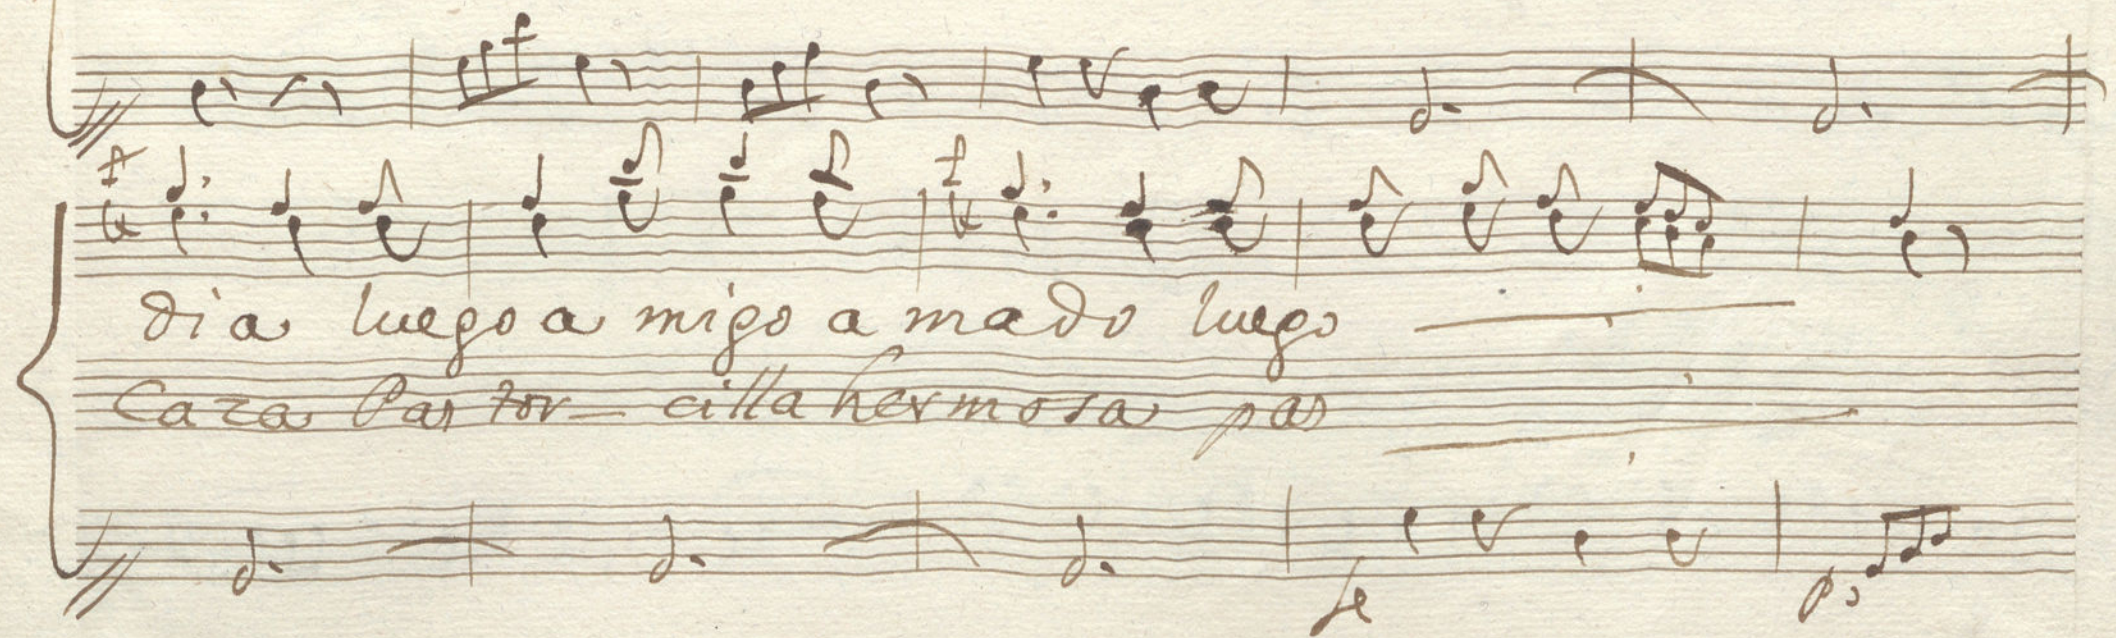 dia luego a migo a mado luego
Caza Pas tor - cilla hermosa pas
fe
po